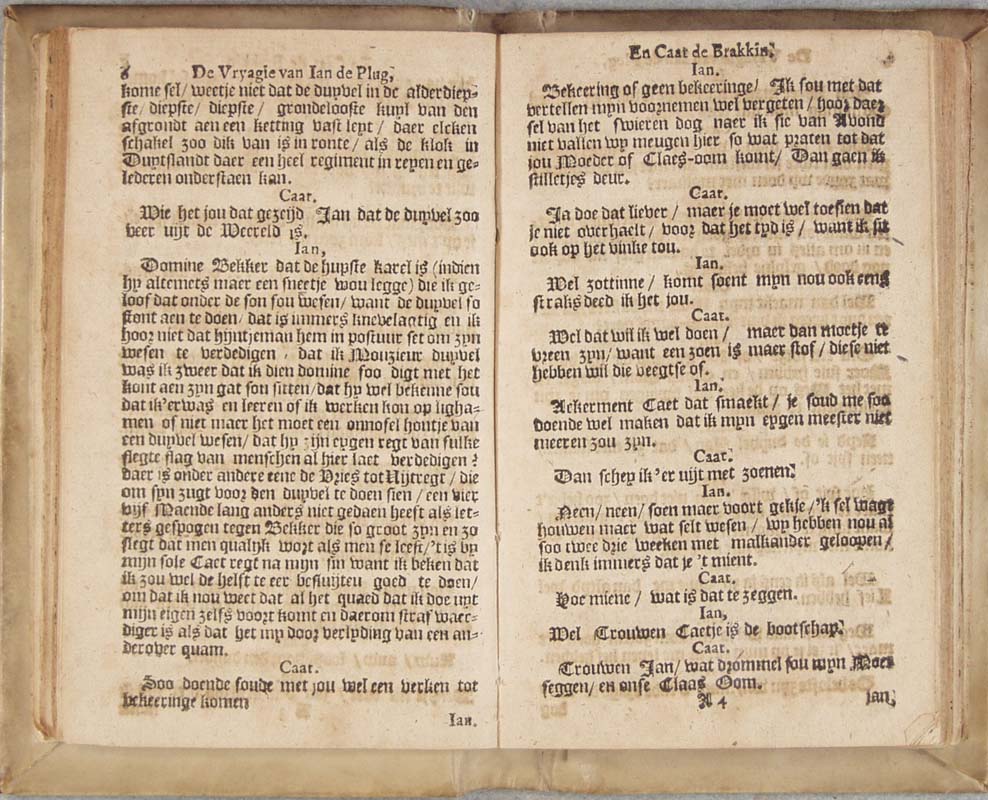 8 De Vryagie van Ian de Plug,
kome sel/ weetje niet dat de duyvel in de alderdiep-
ste/ diepste/ diepste/ grondelooste kuyl van den
afgrondt aen een ketting vast leyt/ daer elcken
schakel zoo dik van is in ronte/ als de klok in
Duytslandt daer een heel regiment in reyen en ge-
lederen onderstaen kan.
Caat.
Wie het jou dat gezeijd Jan dat de duyvel zoo
veer uijt de Weereld is.
Ian,
Domine Bekker dat de hupste karel is (indien
hy altemets maer een sneetje wou legge) die ik ge-
loof dat onder de son sou wesen/ want de duyvel so
stont aen te doen/ dat is immers knevelagtig en ik
hoor niet dat hijntjeman hem in postuur set om zyn
wesen te verdedigen, dat ik Monzieur duyvel
was ik zweer dat ik dien domine soo digt met het
kont aen zyn gat sou sitten/ dat hy wel bekenne sou
dat ik'er was en leeren of ik werken kon op ligha-
men of niet maer het moet een onnosel hontje van
een duyvel wesen/ dat hy zijn eygen regt van sulke
slegte slag van menschen al hier laet verdedigen?
daer is onder andere eene de Vries tot Uijtregt/ die
om syn zugt voor den duyvel te doen sien/ een vier
vijf Maende lang anders niet gedaen heeft als let-
ters gespogen tegen Bekker die so groot zyn en zo
slegt dat men qualijk wort als men se leest/ 't is by
mijn sole Caet regt na mijn sin want ik beken dat
ik zou wel de helft te eer besluijten goed te doen/
om dat ik nou weet dat al het quaed dat ik doe uyt
mijn eigen zelfs voort komt en daerom straf waer-
diger is als dat het my door verlyding van een an-
der over quam.
Caat.
Soo doende soude met jou wel een verken tot
bekeeringe komen
Ian.
En Caat de Brakkin.
Ian.
Bekeering of geen bekeeringe/ Ik sou met dat
vertellen myn voornemen wel vergeten/ hoor daer
sel van het swieren dog naer ik sie van Avond
niet vallen wy meugen hier so wat praten tot dat
jou Moeder of Claes-oom komt/ Dan gaen ik
stilletjes deur.
Caat.
Ja doe dat liever/ maer je moet wel toesien dat
je niet overhaelt/ voor dat het tyd is/ want ik sit
ook op het vinke tou.
Ian.
Wel zottinne/ komt soent myn nou ook eens
straks deed ik het jou.
Caat.
Wel dat wil ik wel doen/ maer dan moetje te
vreen zyn/ want een zoen is maer stof/ die se niet
hebben wil die veegt se of.
Ian.
Ackerment Caet dat smaekt/ je soud me soo
doende wel maken dat ik myn eygen meester niet
meeren zou zyn.
Caat.
Dan schey ik'er uijt met zoenen.
Ian.
Neen/ neen/ soen maer voort gekje/ 'k sel wagt
houwen maer wat selt wesen/ wy hebben nou al
soo twee drie weeken met malkander geloopen/
ik denk immers dat je 't mient.
Caat.
Hoe miene/ wat is dat te zeggen.
Ian,
Wel Trouwen Caetje is de bootschap.
Caat.
Trouwen Jan/ wat drommel sou myn Moer
seggen/ en onse Claas Oom.
A 4 Ian,